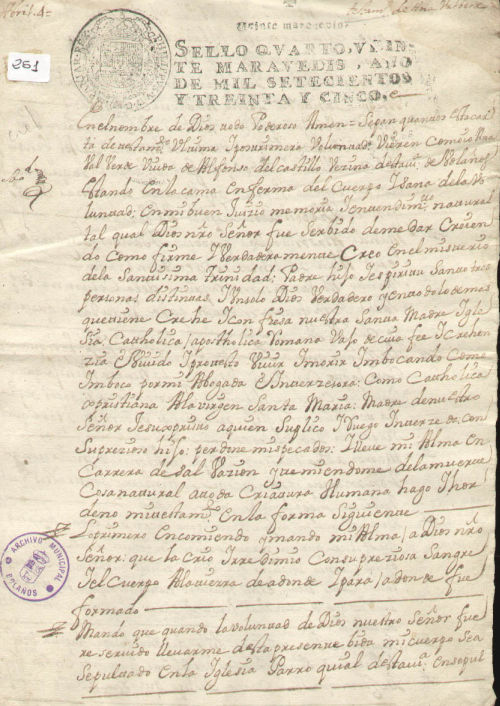 261
Veinte maravedis
SELLO QVARTO, VEIN-
TE MARAVEDIS, AÑO
DE MIL SETECIENTOS
Y TREINTA Y CINCO.
En el nombre de Dios todo Poderoso Amen = Sepan quantos esta car
ta de testamto Vltima Iposrimera Voluntad Vieren Como io
Val Verde Viuda de Alfonso del castillo Vezina desta va de Bolaños
Estando En la cama Enferma del Cuerpo Isana de la Vo
luntad; En mi buen Juizio memoria Ientendimto natural
tal qual Dios nro Señor fue Serbido de me dar Creien
do Como firme IVerdaderamente Creo En el misterio
de la Santisima trinidad; Padre hijo Iespiritu Santo tres
personas distintas IVnsolo Dios Verdadero yentodo lo demas
que tiene Crehe Icon fiesa nuestra Santa Madre Igle
sia Catthólica apostholica Romana Vajo de cuia fee Icrehen
zia è Viuido Iprotesto Viuir Imorir Imbocando Como
Imboco por mi Abogada è Interzesora; Como Catthólica
xpristiana Alavirgen Santa Maria; Madre de nuestro
Señor Jesucoprisuo aquien Suplico IRuego Interzeda; con
Su prezioso hijo; perdone mis pecados; Illeue mi Alma En
Carrera de Sal Vazion que miendome de la muerte
Cosa natural atoda Criatura Humana hago Ihor
deno mi testamto En la forma Siguiente
Lo primero Encomiendo ymando mi Alma a Dios nro
Señor; que la crio Irredimio Con su preziosa Sangre
Iel Cuerpo Alatierra de adonde Ipara adonde fue
formado
Mando que quando la voluntad de Dios nuestro Señor fue
re seruido lleuarme desta presente bida mi cuerpo sea
Sepultado En la Iglesia Parro quial desta va En sepul
ARCHIVO MUNICIPAL
BOLAÑOS